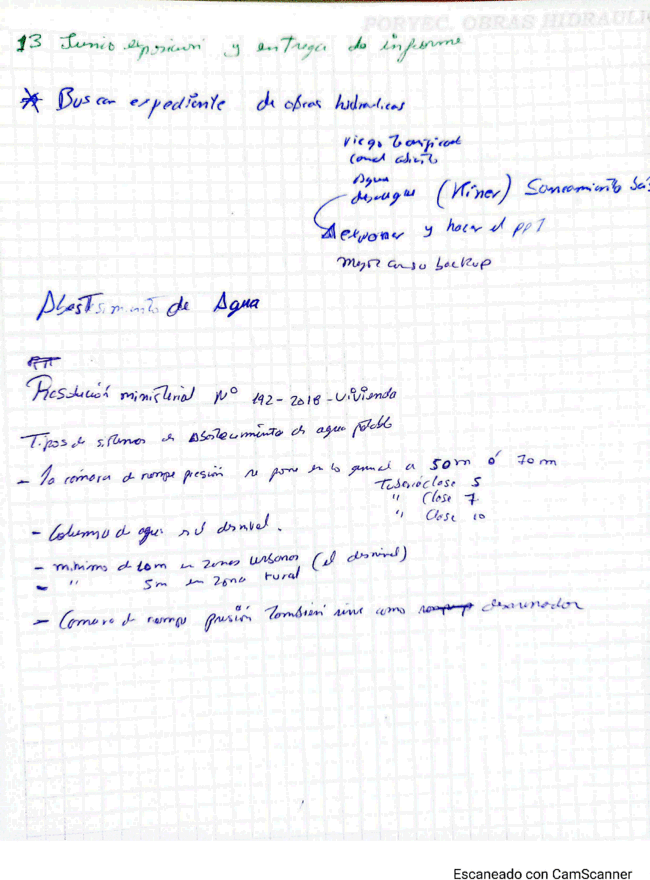 PORYEC. OBRAS HIDRAULIC
13 Junio exposición y entrega de informe
* Buscar expediente de obras hidraulicas
riego tecnificado
canal abierto
Agua
desague (Kiner) Saneamiento
exponer y hacer el PPT
backup
Abastesimiento de Agua
Resolución ministerial N° 192-2018-vivienda
Tipos de sistemas de abastecimiento de agua potable
- la cámara de rompe presión se pone en lo general a 50m ó 70m
Tubería clase 5
" Clase 7
" Clase 10
- Columna de agua es el desnivel.
- mínimo de 10m en zonas urbanas (el desnivel)
- " 5m en zona rural
- Camara de rompe presión también sirve como desarenador
Escaneado con CamScanner